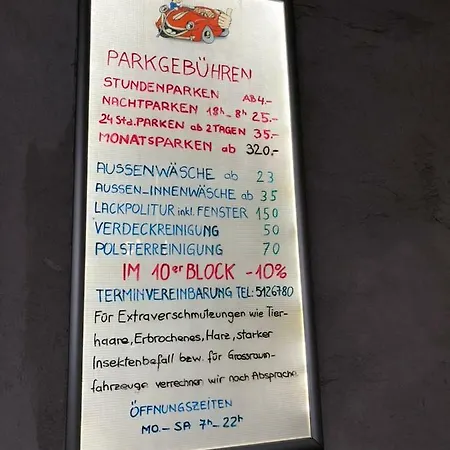 PARKGEBÜHREN
STUNDENPARKEN AB 4.-
NACHTPARKEN 18h - 8h 25.-
24 Std. PARKEN ab 2 TAGEN 35.-
MONATSPARKEN ab 320.-
AUSSENWÄSCHE ab 23
AUSSEN-INNENWÄSCHE ab 35
LACKPOLITUR inkl. FENSTER 150
VERDECKREINIGUNG 50
POLSTERREINIGUNG 70
IM 10er BLOCK -10%
TERMINVEREINBARUNG TEL: 5126780
Für Extraverschmutzungen wie Tier-
haare, Erbrochenes, Harz, starker
Insektenbefall bzw. für Grossraum-
fahrzeuge verrechnen wir nach Absprache
ÖFFNUNGSZEITEN
MO.- SA 7h - 22h